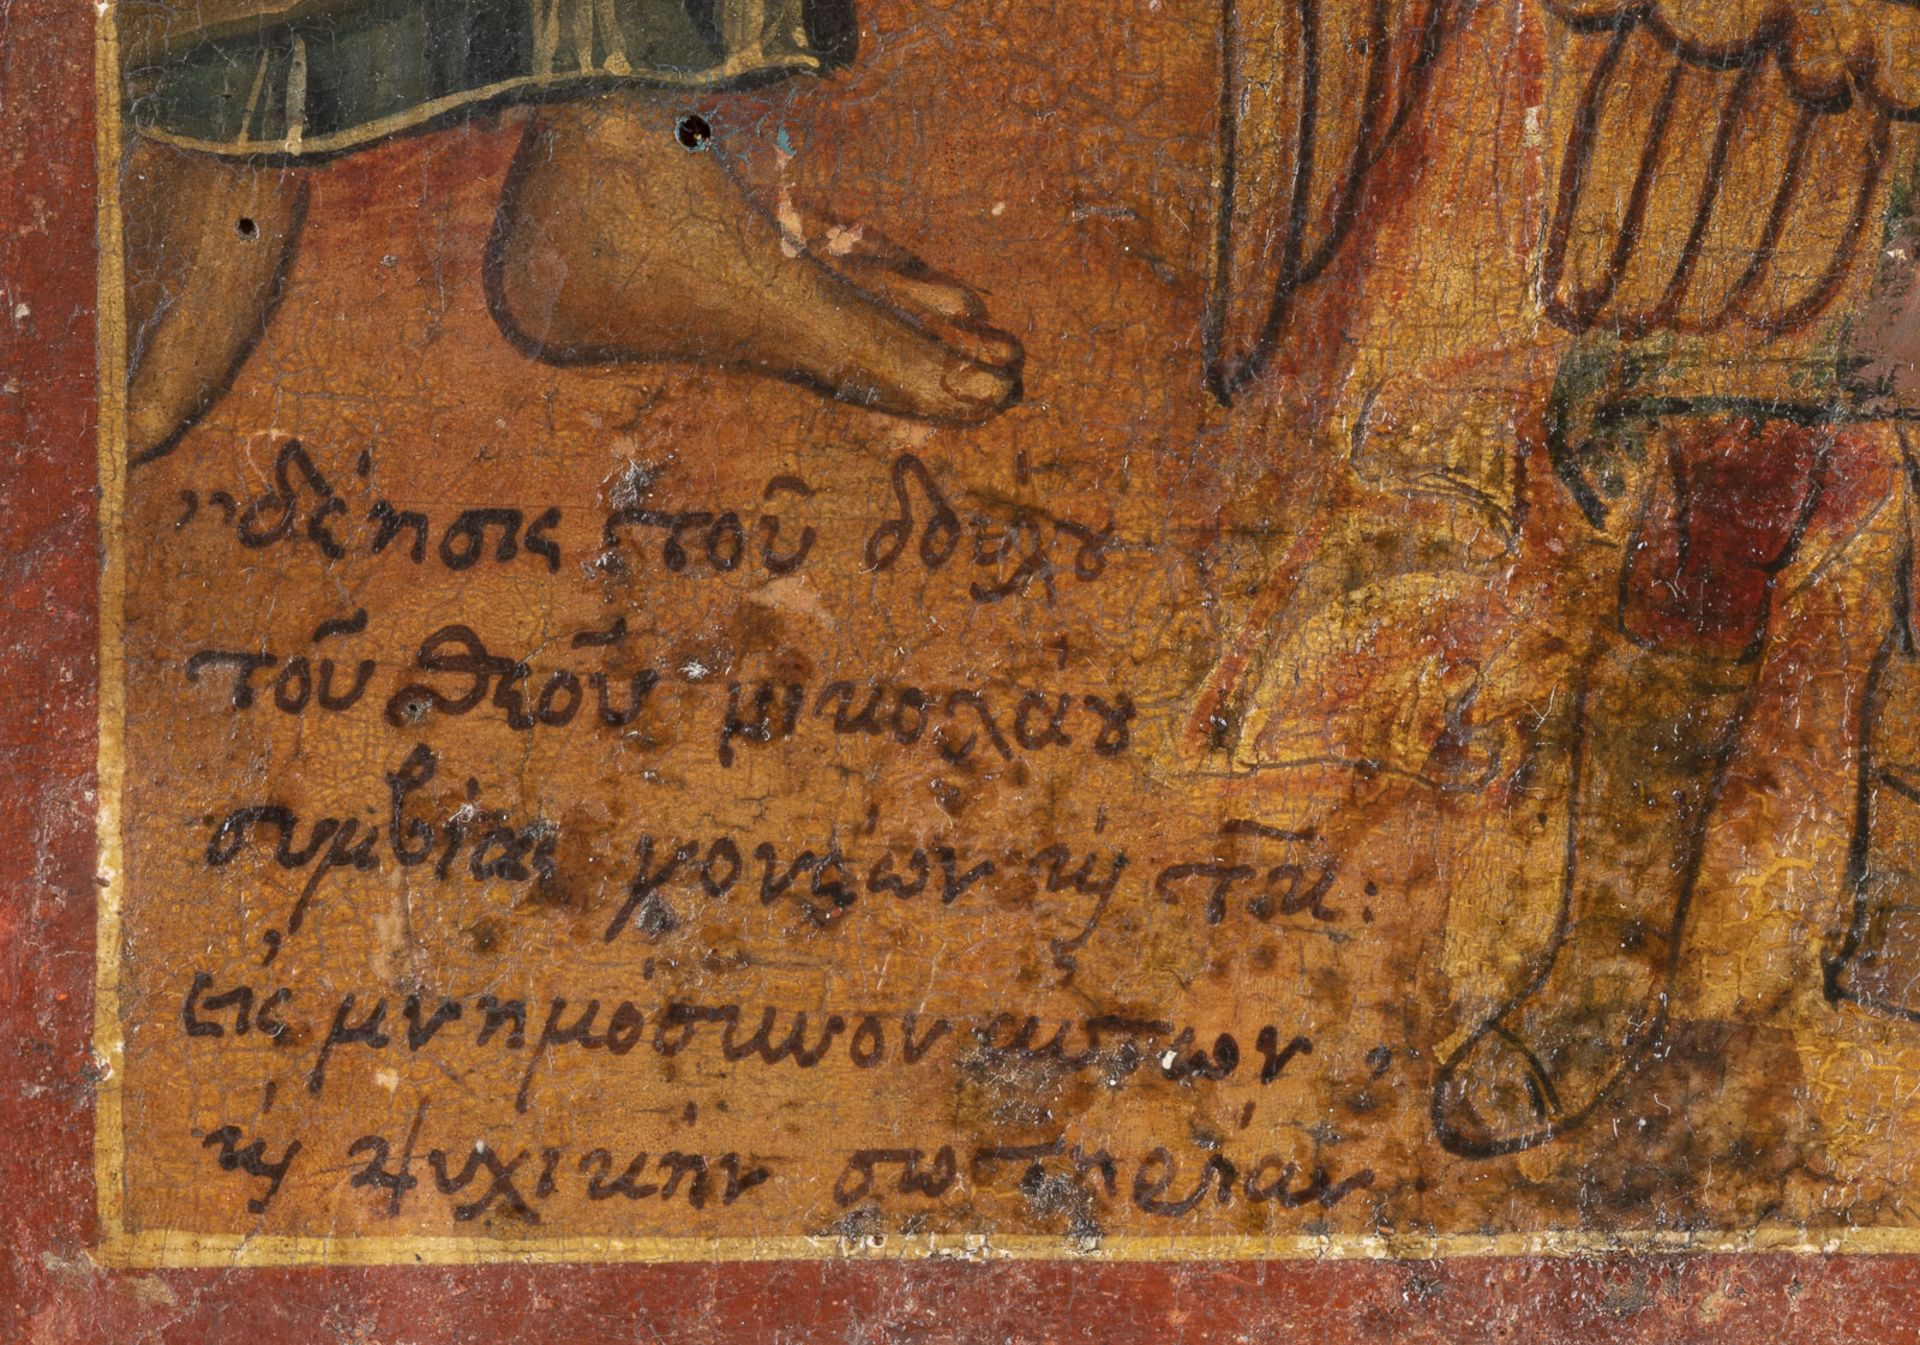 ,, δέησις τοῦ δδελχ
τοῦ θεοῦ μικολάȣ
συμβίας γονέων κ̀ τέκ:
εἰς μνημόσυνον αυτῶν,
κ̀ ψυχικήν σωτηρίαν